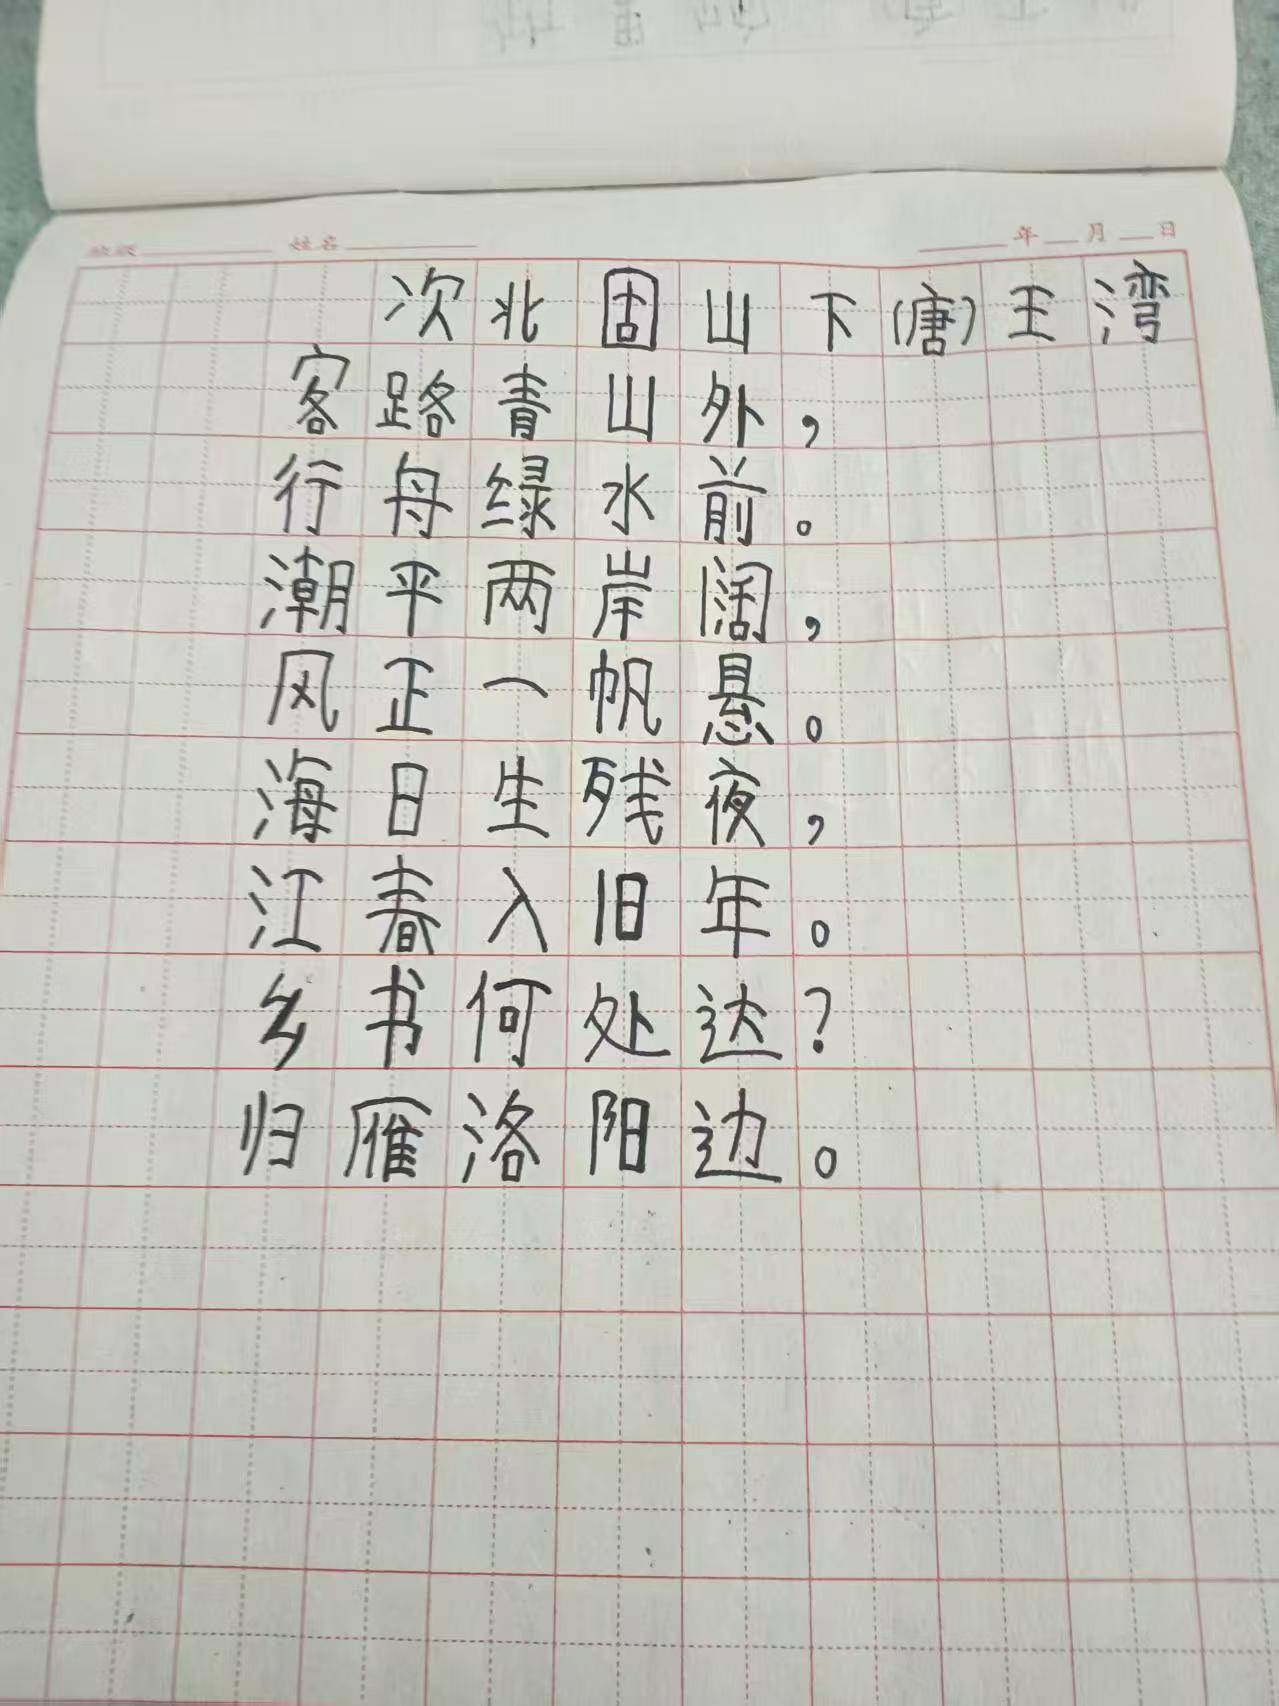 班级 姓名 年 月 日
次北固山下(唐)王湾
客路青山外,
行舟绿水前。
潮平两岸阔,
风正一帆悬。
海日生残夜,
江春入旧年。
乡书何处达?
归雁洛阳边。